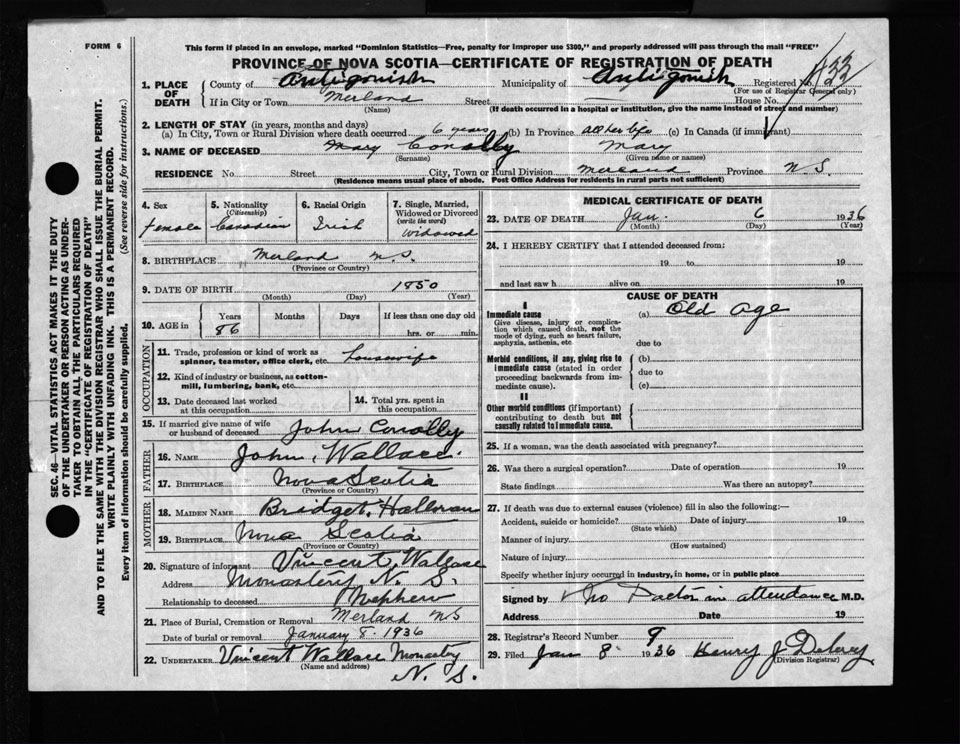 FORM 6
This form if placed in an envelope, marked "Dominion Statistics—Free, penalty for improper use $300," and properly addressed will pass through the mail "FREE"
PROVINCE OF NOVA SCOTIA—CERTIFICATE OF REGISTRATION OF DEATH
1. PLACE OF DEATH County of Antigonish Municipality of Antigonish Registered No.
(For use of Registrar General only)
If in City or Town Merland Street House No.
(Name) (If death occurred in a hospital or institution, give the name instead of street and number)
2. LENGTH OF STAY (in years, months and days)
(a) In City, Town or Rural Division where death occurred 6 years (b) In Province all her life (c) In Canada (if immigrant)
3. NAME OF DECEASED Mary Conolly Mary
(Surname) (Given name or names)
RESIDENCE No. Street City, Town or Rural Division Merland Province N.S.
(Residence means usual place of abode. Post Office Address for residents in rural parts not sufficient)
SEC. 46—VITAL STATISTICS ACT MAKES IT THE DUTY
OF THE UNDERTAKER OR PERSON ACTING AS UNDER-
TAKER TO OBTAIN ALL THE PARTICULARS REQUIRED
IN THE "CERTIFICATE OF REGISTRATION OF DEATH"
AND TO FILE THE SAME WITH THE DIVISION REGISTRAR WHO SHALL ISSUE THE BURIAL PERMIT.
WRITE PLAINLY WITH UNFADING INK. THIS IS A PERMANENT RECORD.
Every item of information should be carefully supplied. (See reverse side for instructions.)
4. Sex 5. Nationality (Citizenship) 6. Racial Origin 7. Single, Married, Widowed or Divorced (write the word)
Female Canadian Irish Widowed
8. BIRTHPLACE Merland N.S.
(Province or Country)
9. DATE OF BIRTH 1850
(Month) (Day) (Year)
10. AGE in Years Months Days If less than one day old
86 hrs. or min.
OCCUPATION
11. Trade, profession or kind of work as spinner, teamster, office clerk, etc. Housewife
12. Kind of industry or business, as cotton-mill, lumbering, bank, etc.
13. Date deceased last worked at this occupation 14. Total yrs. spent in this occupation
15. If married give name of wife or husband of deceased John Conolly
FATHER
16. NAME John Wallace
17. BIRTHPLACE Nova Scotia
(Province or Country)
MOTHER
18. MAIDEN NAME Bridget Halloran
19. BIRTHPLACE Nova Scotia
(Province or Country)
20. Signature of informant Vincent Wallace
Address Monastery N.S.
Relationship to deceased Nephew
21. Place of Burial, Cremation or Removal Merland NS
Date of burial or removal January 8. 1936
22. UNDERTAKER Vincent Wallace Monastery
(Name and address) N.S.
MEDICAL CERTIFICATE OF DEATH
23. DATE OF DEATH Jan. 6 1936
(Month) (Day) (Year)
24. I HEREBY CERTIFY that I attended deceased from:
19 to 19
and last saw h alive on 19
CAUSE OF DEATH
I
Immediate cause (a) Old age
Give disease, injury or complication which caused death, not the mode of dying, such as heart failure, asphyxia, asthenia, etc.
due to
Morbid conditions, if any, giving rise to immediate cause (stated in order proceeding backwards from immediate cause).
(b)
due to
(c)
II
Other morbid conditions (if important) contributing to death but not causally related to immediate cause.
25. If a woman, was the death associated with pregnancy?
26. Was there a surgical operation? Date of operation 19
State findings Was there an autopsy?
27. If death was due to external causes (violence) fill in also the following:—
Accident, suicide or homicide? Date of injury 19
(State which)
Manner of injury
(How sustained)
Nature of injury
Specify whether injury occurred in industry, in home, or in public place
Signed by No Doctor in attendance M.D.
Address Date 19
28. Registrar's Record Number 9
29. Filed Jan 8 1936 Henry J
(Division Registrar)